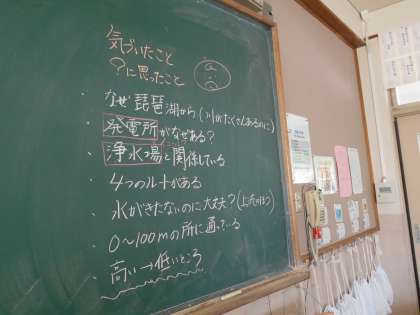 気づいたこと
?に思ったこと
・なぜ琵琶湖から(川がたくさんあるのに)
・発電所がなぜある?
・浄水場と関係している
・4つのルートがある
・水がきたないのに大丈夫?(上流のほう)
・0〜100mの所に通っている
・高い→低いところ